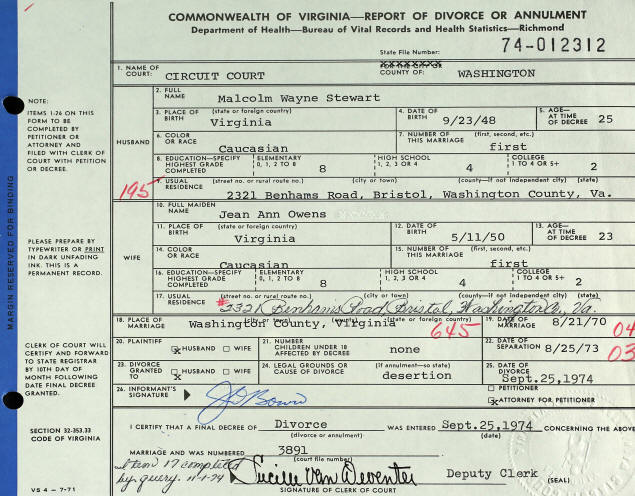 COMMONWEALTH OF VIRGINIA—REPORT OF DIVORCE OR ANNULMENT
Department of Health—Bureau of Vital Records and Health Statistics—Richmond
State File Number: 74-012312
1. NAME OF COURT: CIRCUIT COURT COUNTY OF: WASHINGTON
NOTE:
ITEMS 1-26 ON THIS
FORM TO BE
COMPLETED BY
PETITIONER OR
ATTORNEY AND
FILED WITH CLERK OF
COURT WITH PETITION
OR DECREE.
PLEASE PREPARE BY
TYPEWRITER OR PRINT
IN DARK UNFADING
INK. THIS IS A
PERMANENT RECORD.
CLERK OF COURT WILL
CERTIFY AND FORWARD
TO STATE REGISTRAR
BY 10TH DAY OF
MONTH FOLLOWING
DATE FINAL DECREE
GRANTED.
SECTION 32-353.33
CODE OF VIRGINIA
VS 4 - 7-71
MARGIN RESERVED FOR BINDING
HUSBAND
2. FULL NAME Malcolm Wayne Stewart
3. PLACE OF BIRTH (state or foreign country) Virginia 4. DATE OF BIRTH 9/23/48 5. AGE— AT TIME OF DECREE 25
6. COLOR OR RACE Caucasian 7. NUMBER OF THIS MARRIAGE (first, second, etc.) first
8. EDUCATION—SPECIFY HIGHEST GRADE COMPLETED ELEMENTARY 0, 1, 2 TO 8 8 HIGH SCHOOL 1, 2, 3 OR 4 4 COLLEGE 1 TO 4 OR 5+ 2
195
9. USUAL RESIDENCE (street no. or rural route no.) (city or town) (county—if not independent city) (state)
2321 Benhams Road, Bristol, Washington County, Va.
WIFE
10. FULL MAIDEN NAME Jean Ann Owens
11. PLACE OF BIRTH (state or foreign country) Virginia 12. DATE OF BIRTH 5/11/50 13. AGE— AT TIME OF DECREE 23
14. COLOR OR RACE Caucasian 15. NUMBER OF THIS MARRIAGE (first, second, etc.) first
16. EDUCATION—SPECIFY HIGHEST GRADE COMPLETED ELEMENTARY 0, 1, 2 TO 8 8 HIGH SCHOOL 1, 2, 3 OR 4 4 COLLEGE 1 TO 4 OR 5+ 2
17. USUAL RESIDENCE (street no. or rural route no.) (city or town) (county—if not independent city) (state)
Benhams Road, Bristol, Washington Co., Va.
18. PLACE OF MARRIAGE (state or foreign country) Washington County, Virginia 645 19. DATE OF MARRIAGE 8/21/70 04
20. PLAINTIFF x HUSBAND WIFE 21. NUMBER CHILDREN UNDER 18 AFFECTED BY DECREE none 22. DATE OF SEPARATION 8/25/73 03
23. DIVORCE GRANTED TO x HUSBAND WIFE 24. LEGAL GROUNDS OR CAUSE OF DIVORCE (if annulment—so state) desertion 25. DATE OF DIVORCE Sept.25,1974
26. INFORMANT'S SIGNATURE PETITIONER
x ATTORNEY FOR PETITIONER
I CERTIFY THAT A FINAL DECREE OF Divorce WAS ENTERED Sept.25,1974 CONCERNING THE ABOVE
(divorce or annulment) (date)
MARRIAGE AND WAS NUMBERED 3891
(court file number)
Item 17 completed
by query. 11-1-74
Lucille Van Deventer Deputy Clerk (SEAL)
SIGNATURE OF CLERK OF COURT